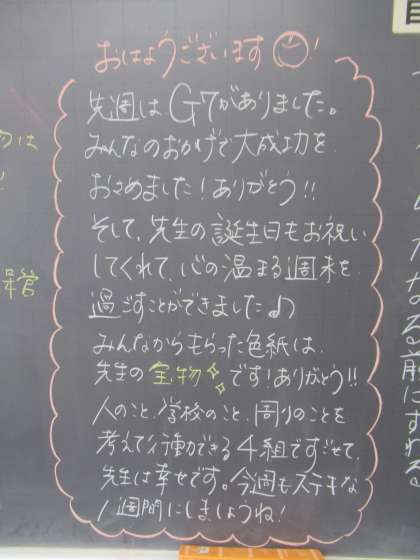 おはようございます!
先週は、G7がありました。
みんなのおかげで大成功を
おさめました!ありがとう!!
そして、先生の誕生日もお祝い
してくれて、心の温まる週末を
過ごすことができました♪
みんなからもらった色紙は、
先生の宝物です!ありがとう!!
人のこと、学校のこと、周りのことを
考えて行動できる4組ですごせて、
先生は幸せです。今週もステキな
1週間にしましょうね!